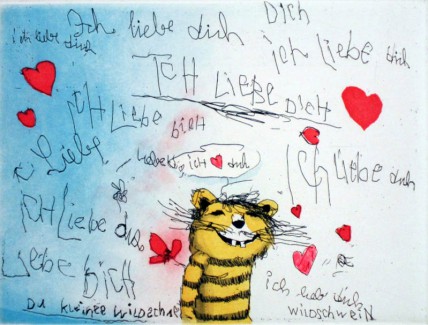 Ich liebe dich
DICH
ich liebe dich
ich liebe dich
ICH LIEBE DICH
ICH LIEBE DICH
Liebe
ich dich
ICH liebe dich
ICH LIEBE dich
LIEBE DICH
DU kleines WILDSCHWEIN
ich liebe dich
WILDSCHWEIN